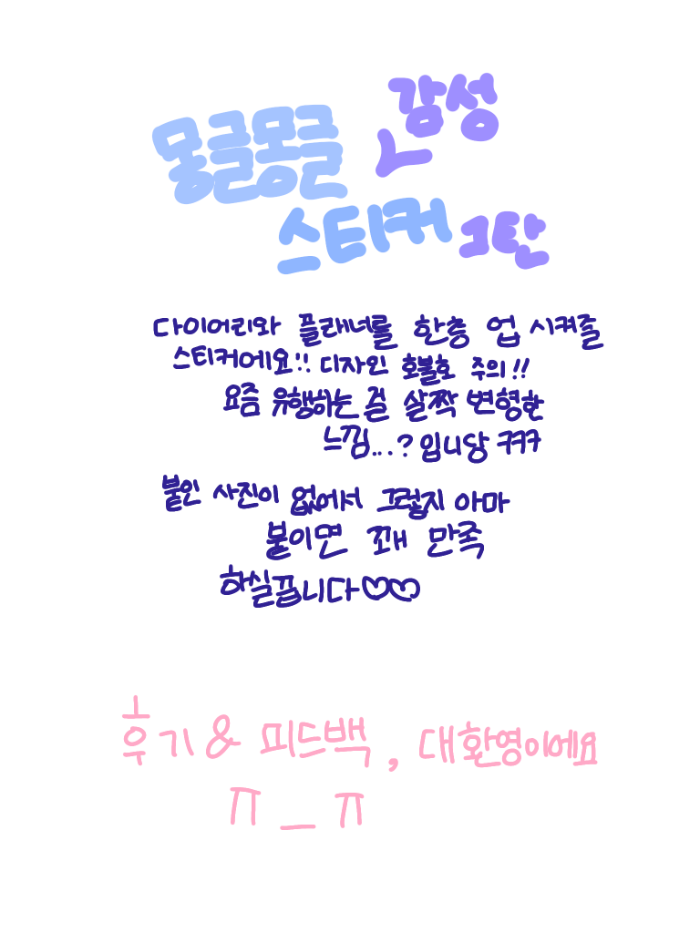 몽글몽글 감성
스티커 1탄
다이어리와 플래너를 한층 업 시켜줄
스티커에요!! 디자인 호불호 주의!!
요즘 유행하는 걸 살짝 변형한
느낌...? 입니당 ㅋㅋㅋ
붙인 사진이 없어서 그렇지 아마
붙이면 꽤 만족
하실껍니다♡♡
후기 & 피드백, 대환영이에요
ㅠ_ㅠ